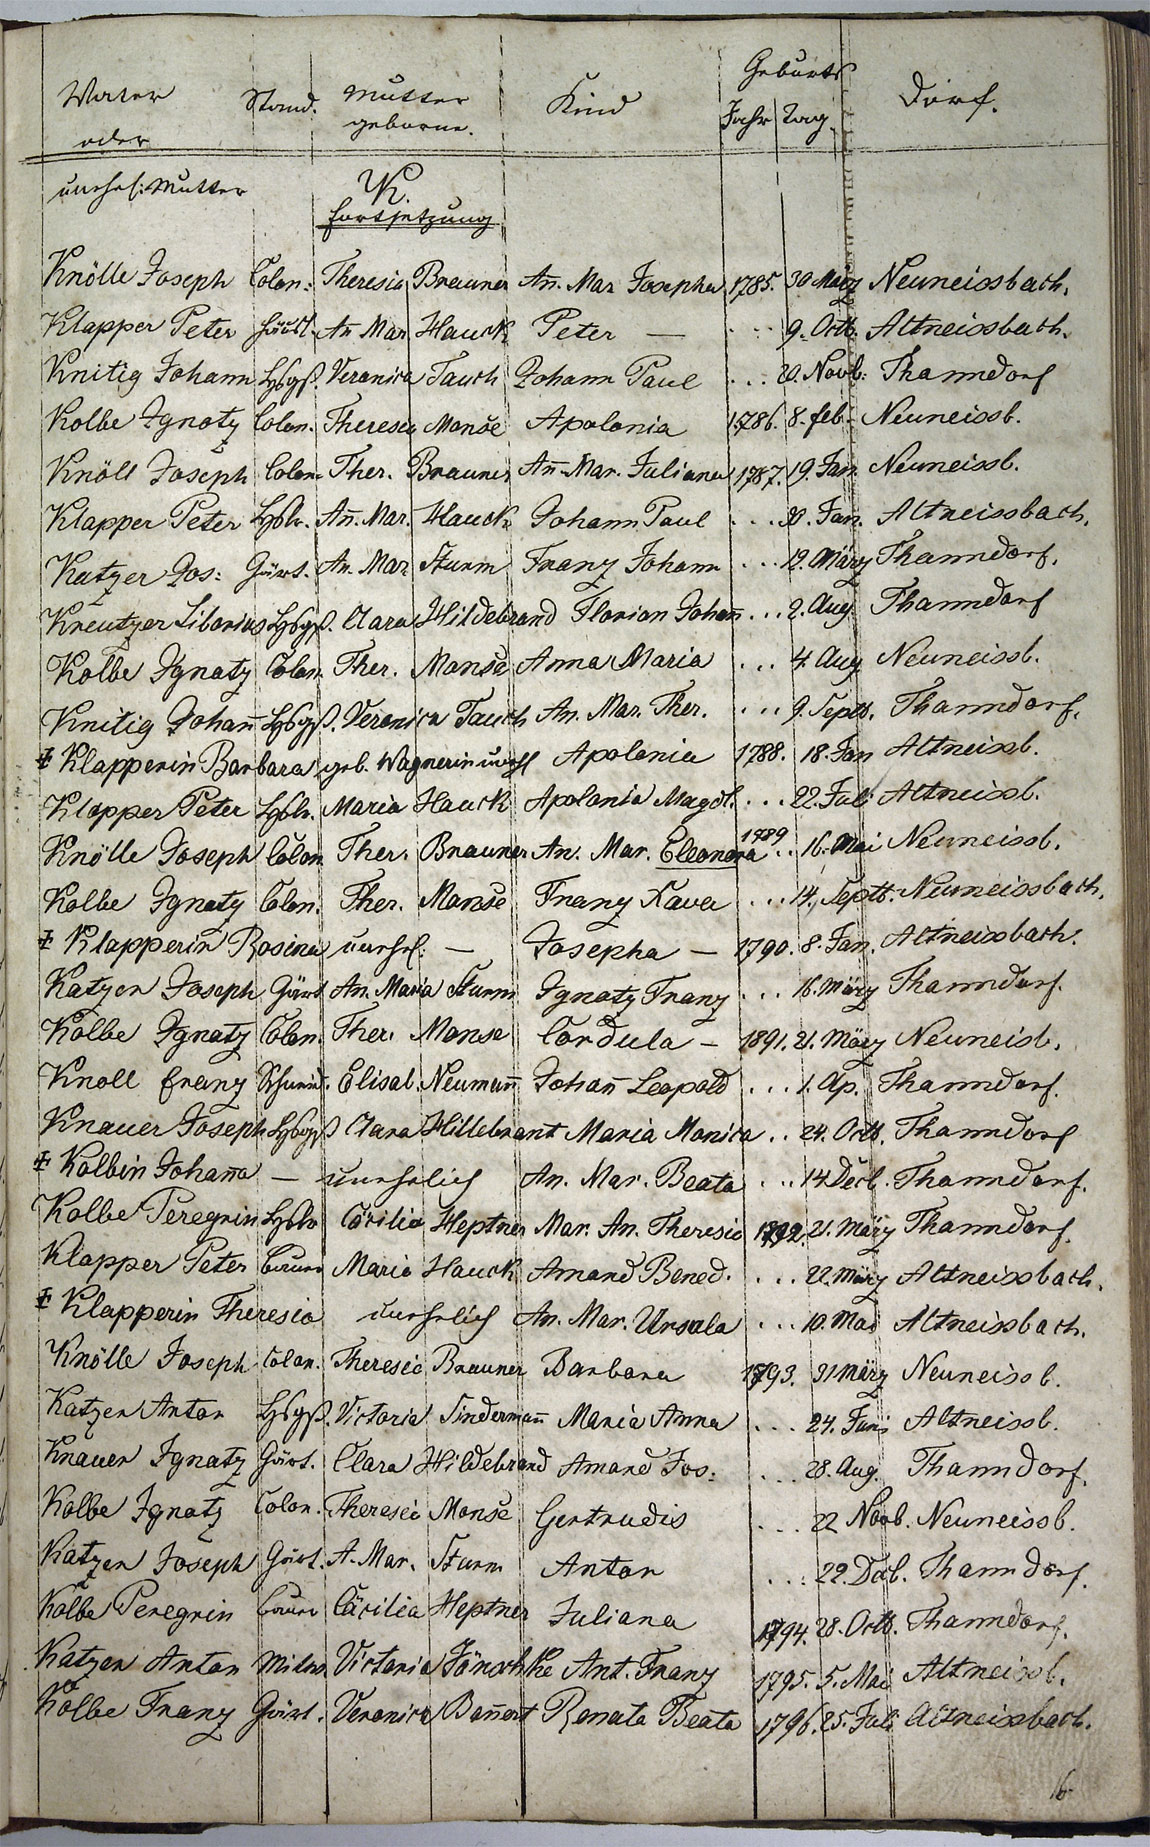 Vater Stand. Mutter Kind Geburts Dorf.
oder geborne. Jahr Tag.
unehel: Mutter K.
Fortsetzung
Knölle Joseph Colon: Theresia Brauner An. Mar Josepha 1785. 30 März Neuneissbach.
Klapper Peter An Mar Hauck Peter — ... 9. Octb. Altneissbach.
Knitig Johann Hsgß. Veronica Tauch Johann Paul ... 20. Novb: Thanndorf
Kolbe Ignatz Colon. Theresia Monse Apolonia 1786. 8. feb. Neuneissb.
Knöll Joseph Colon Ther. Brauner An̄. Mar. Juliana 1787. 19. Jan. Neuneissb.
Klapper Peter Hsbr. An̄. Mar. Hauck Johann Paul ... 30. Jan. Altneissbach.
Katzer Jos: Gärt. An. Mar Sturm Franz Johann ... 12. März Thanndorf.
Kreutzer Liborius Hsgß. Clara Hildebrand Florian Johan̄ ... 2. Aug Thanndorf
Kolbe Ignatz Colon. Ther. Monse Anna Maria ... 4. Aug Neuneissb.
Knitig Johan̄ Hsgß. Veronica Tauch An. Mar. Ther. ... 9. Septb. Thanndorf.
Klapperin Barbara geb. Wagnerin unehl Apolonia 1788. 18. Jan Altneissb.
Klapper Peter Hsbr. Maria Hauck Apolonia Magdl. ... 22. Juli Altneissb.
Knölle Joseph Colon Ther. Brauner An. Mar. Eleonora 1789 .. 16. Mai Neuneissb.
Kolbe Ignatz Colon. Ther. Monse Franz Xaver ... 14. Septb. Neuneissbach.
Klapperin Rosina unehel: — Josepha — 1790. 8. Jan. Altneissbach.
Katzer Joseph Gärt An. Maria Sturm Ignatz Franz ... 16. März Thanndorf.
Kolbe Ignatz Colon. Ther. Monse Cordula — 1891. 21. März Neuneisb.
Knoll Franz Schmid. Elisab. Neuman̄ Johan̄ Leopold ... 1. Ap. Thanndorf.
Knauer Joseph Hsbgß Clara Hillebrant Maria Monica .. 24. Octb. Thanndorf
Kolbin Johan̄a — unehelich An. Mar. Beata ... 14 Decb. Thanndorf.
Kolbe Peregrin Hsbr Cäcilia Heptner Mar. An. Theresia 1792. 21. März Thanndorf.
Klapper Peter Bauer Maria Hauck Amand Bened. ... 22. März Altneissbach.
Klapperin Theresia unehelich An. Mar. Ursula ... 10. Mai Altneissbach.
Knölle Joseph Colon. Theresia Brauner Barbara 1793. 31 März Neuneissb.
Katzer Anton Hsbgß. Victoria Linderman̄ Maria Anna ... 24. Juni Altneissb.
Knauer Ignatz Gärt. Clara Hildebrand Amand Jos: ... 28. Aug. Thanndorf.
Kolbe Ignatz Colon. Theresia Monse Gertrudis ... 22 Novb. Neuneissb.
Katzer Joseph Gärt. A. Mar. Sturm Anton ... 22. Decb. Thanndorf.
Kolbe Peregrin Bauer Cäcilia Heptner Juliana 1794. 28. Octb. Thanndorf.
Katzer Anton Victoria Jänschke Ant. Franz 1795. 5. Mai Altneissb.
Kolbe Franz Gärt. Veronica Ban̄ert Renata Beata 1796. 25. Juli Altneissbach.
16